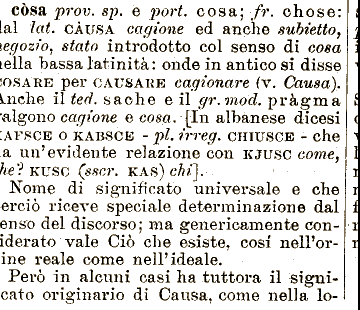 còsa prov. sp. e port. cosa; fr. chose:
dal lat. CÀUSA cagione ed anche subietto,
negozio, stato introdotto col senso di cosa
nella bassa latinità: onde in antico si disse
COSARE per CAUSARE cagionare (v. Causa).
Anche il ted. sache e il gr. mod. pràgma
valgono cagione e cosa. [In albanese dicesi
KAFSCE O KABSCE - pl. irreg. CHIUSCE - che
ha un'evidente relazione con KJUSC come,
che? KUSC (sscr. KAS) chi].
Nome di significato universale e che
perciò riceve speciale determinazione dal
senso del discorso; ma genericamente con-
siderato vale Ciò che esiste, così nell'or-
dine reale come nell'ideale.
Però in alcuni casi ha tuttora il signi-
ficato originario di Causa, come nella lo-